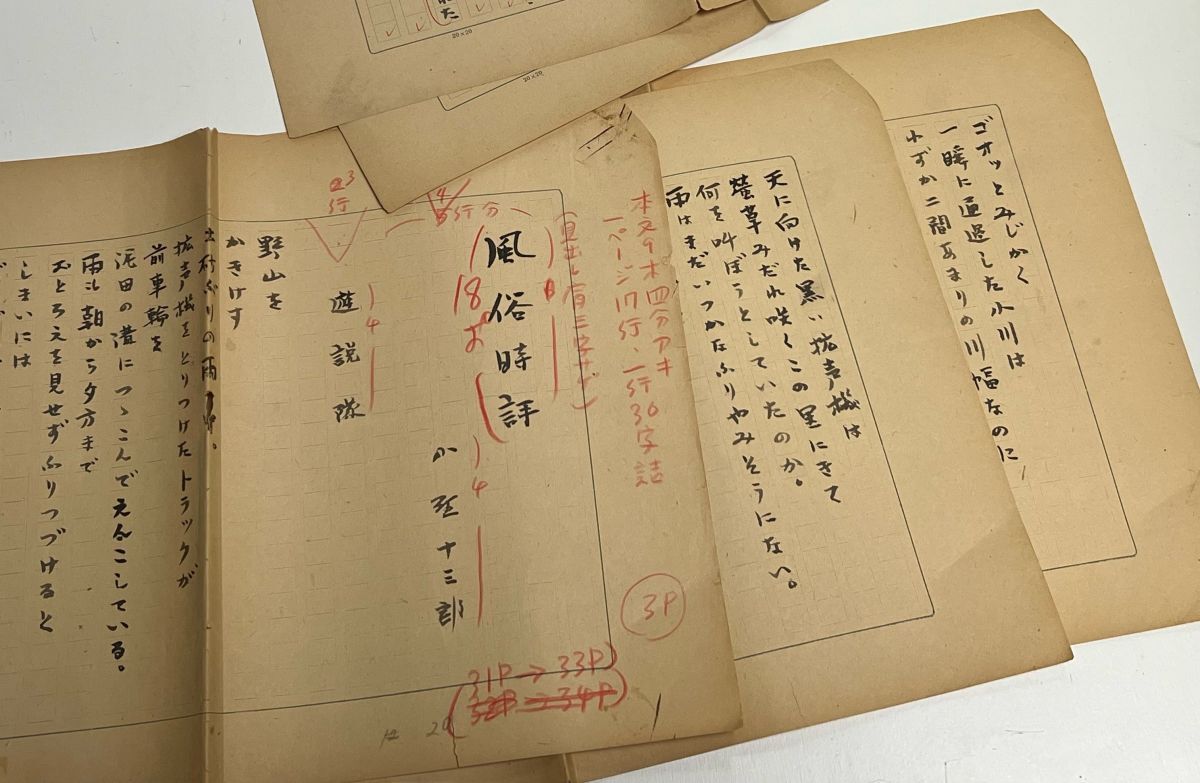 ゴオッとみじかく
一瞬に通過した小川は
わずか二間あまりの川幅なのに
天に向けた黒い拡声機は
螢草みだれ咲くこの里にきて
何を叫ぼうとしていたのか。
雨はまだいつかなふりやみそうにない。
本文9ポ四分アキ
一ページ17行、一行30字詰
風俗時評
18ポ
4
小野十三郎
4
行分
遊説隊
4
3行
野山を
かきけす
どしゃぶりの雨の中。
拡声機をとりつけたトラックが
前車輪を
泥田の溝につっこんでえんこしている。
雨は朝から夕方まで
おとろえを見せずふりつづけると
しまいには
3P
31P→33P
32P→34P
20×20
20×20